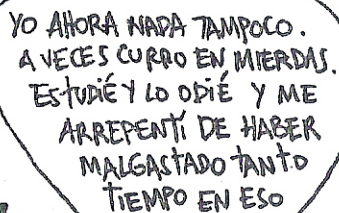 YO AHORA NADA TAMPOCO.
A VECES CURRO EN MIERDAS.
ESTUDIÉ Y LO ODIÉ Y ME
ARREPENTÍ DE HABER
MALGASTADO TANTO
TIEMPO EN ESO